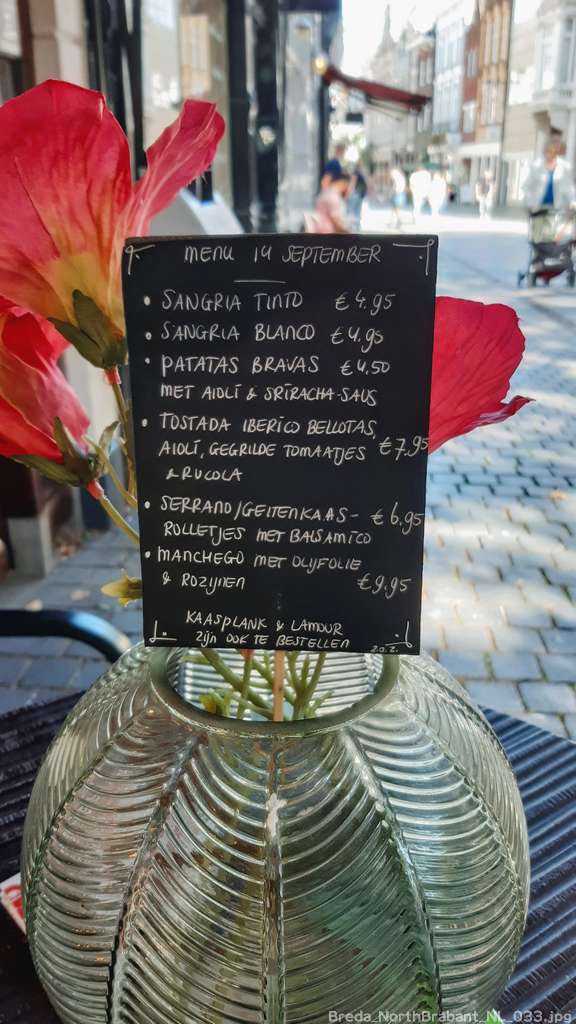 MENU 14 SEPTEMBER
• SANGRIA TINTO €4.95
• SANGRIA BLANCO €4.95
• PATATAS BRAVAS €4,50
MET AIOLÍ & SRIRACHA-SAUS
• TOSTADA IBERICO BELLOTAS,
AIOLÍ, GEGRILDE TOMAATJES €7.95
& RUCOLA
• SERRANO/GEITENKAAS- €6.95
ROLLETJES MET BALSAMICO
• MANCHEGO MET OLIJFOLIE
& ROZIJNEN €9,95
KAASPLANK & LAMOUR
ZIJN OOK TE BESTELLEN
Breda_NorthBrabant_NL_033.jpg